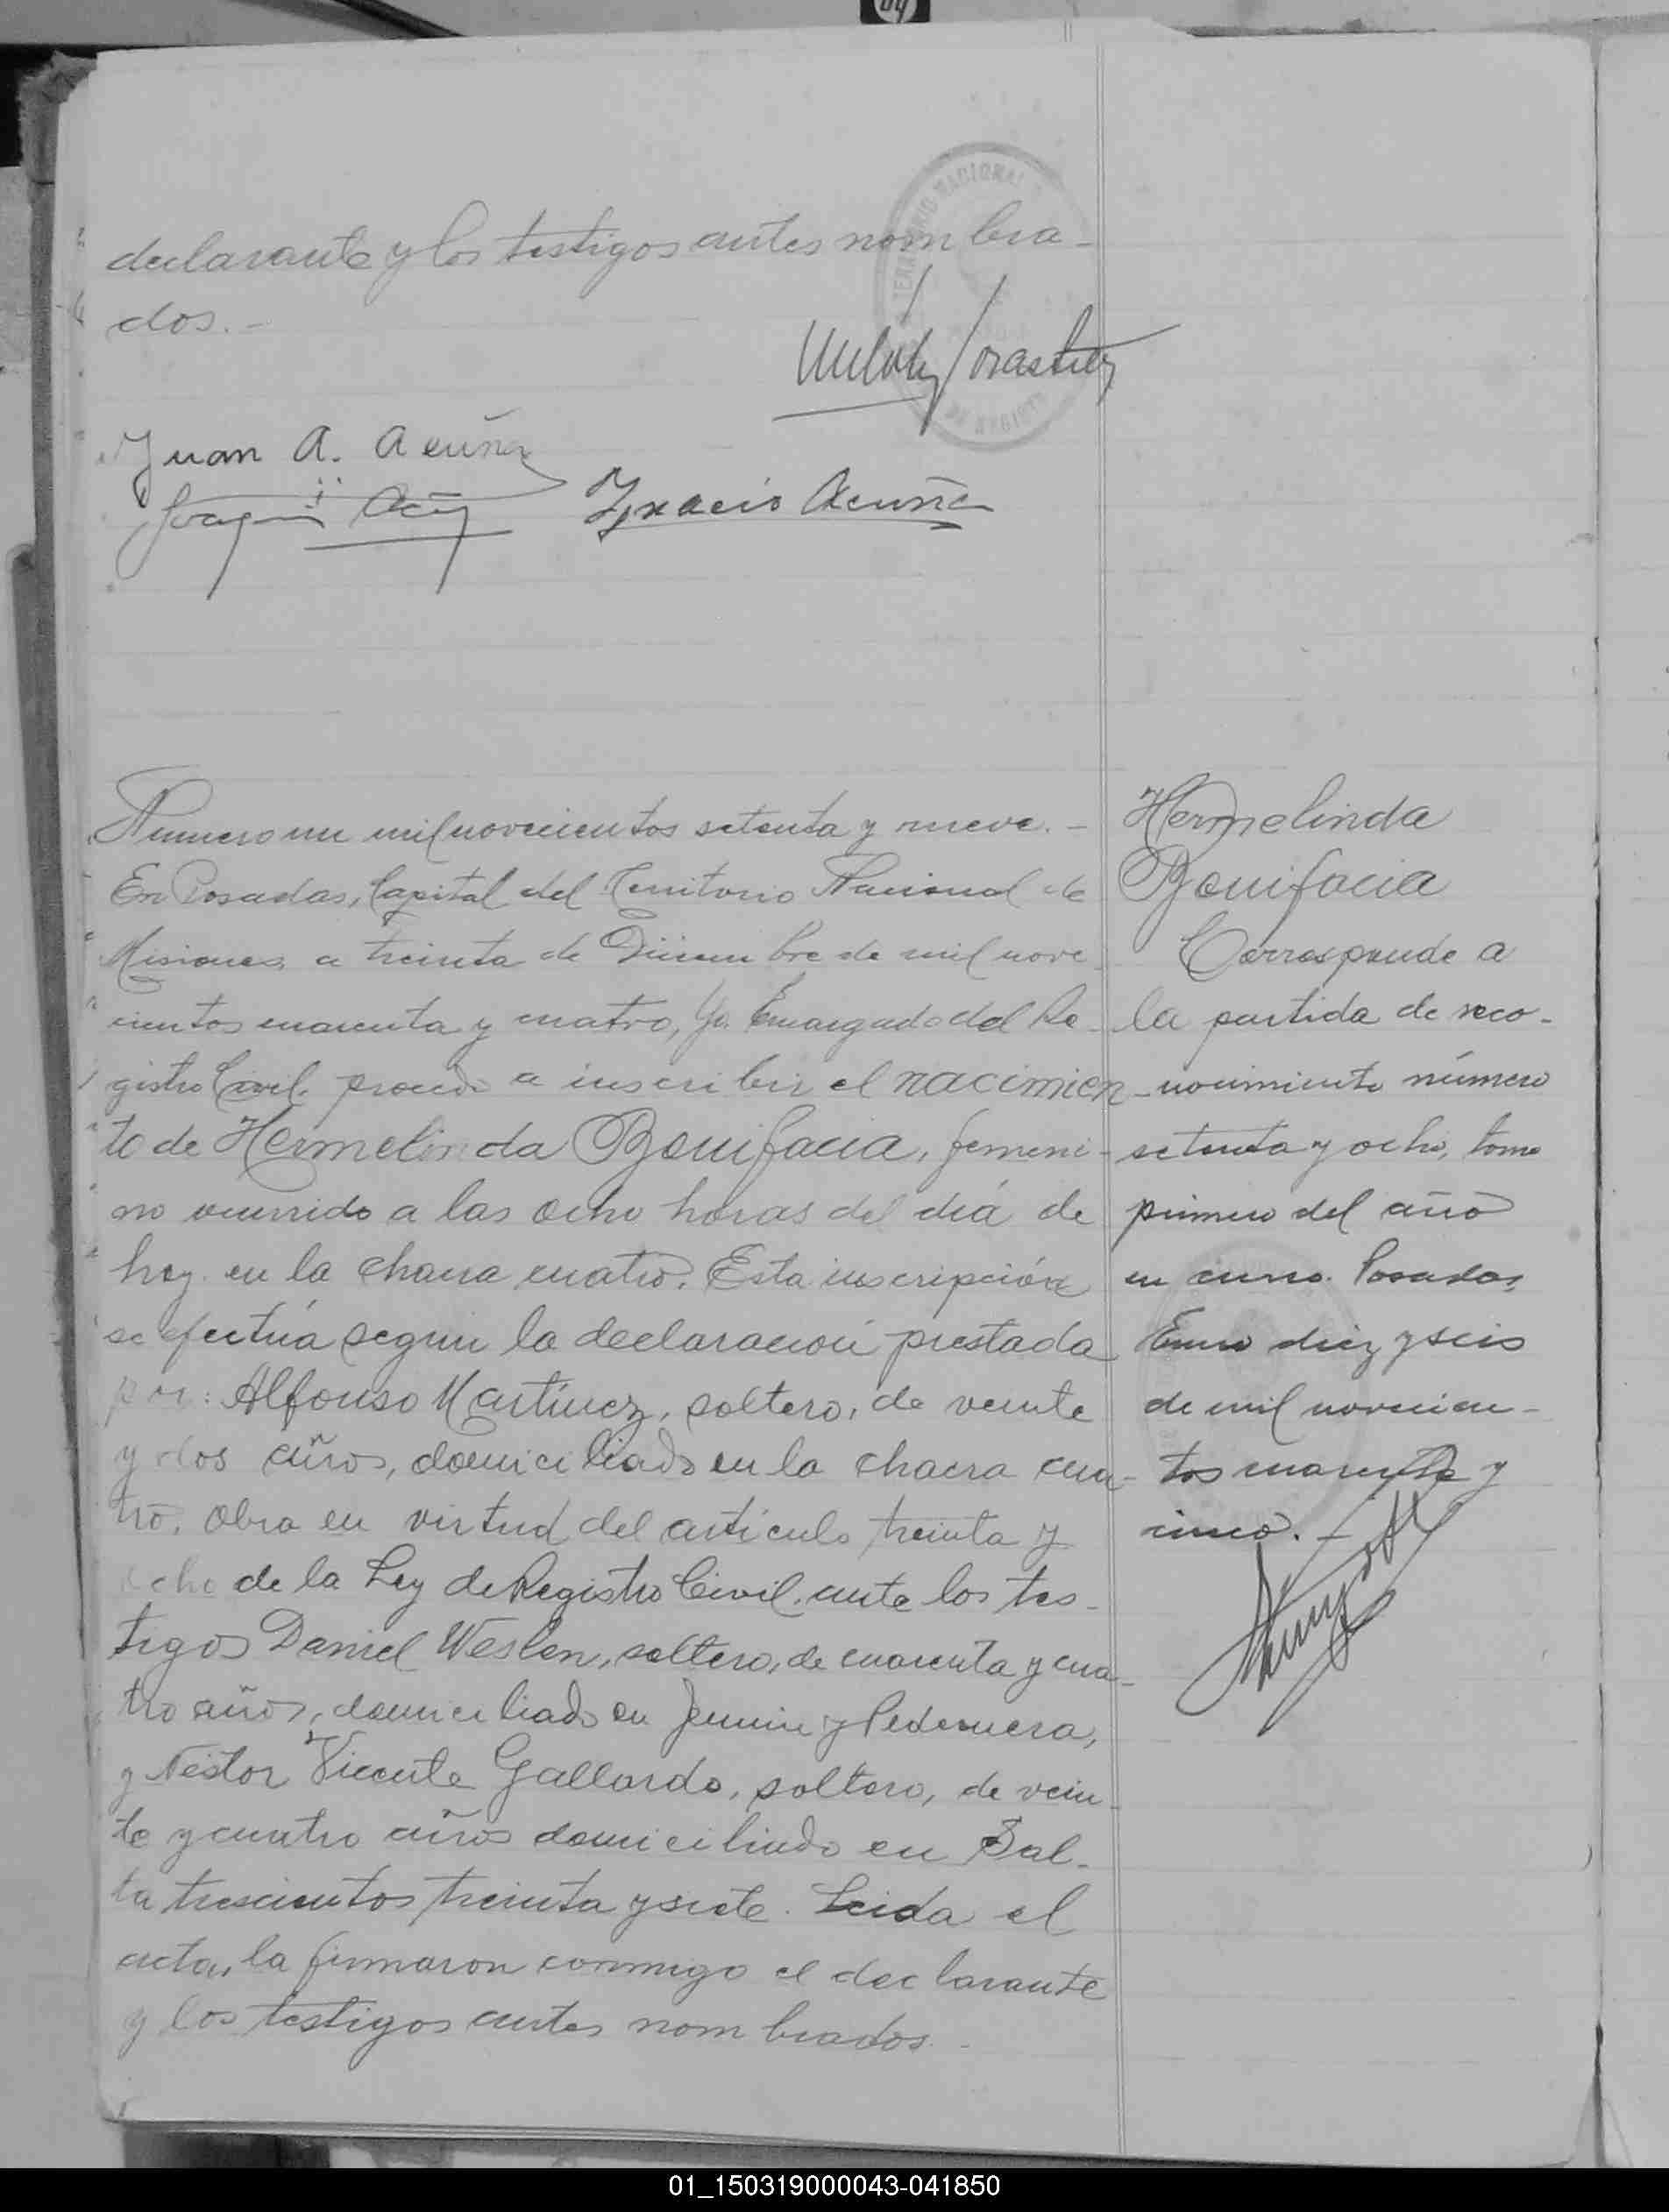 declarante y los testigos antes nombra-
dos.-
Juan A. Acuña
Ignacio Acuña
Numero un mil novecientos setenta y nueve.-
En Posadas, Capital del Territorio Nacional de
Misiones, a treinta de Diciembre de mil nove-
cientos cuarenta y cuatro, Yo. Encargado del Re-
gistro Civil. procedo a inscribir el nacimien-
to de Hermelinda Bonifacia, femeni-
no ocurrido a las ocho horas del día de
hoy en la chacra cuatro. Esta inscripción
se efectúa según la declaración prestada
por: Alfonso Martínez, soltero, de veinte
y dos años, domiciliado en la chacra cua-
tro. Obra en virtud del artículo treinta y
ocho de la Ley de Registro Civil. ante los tes-
tigos Daniel Weslen, soltero, de cuarenta y cua-
tro años, domiciliado en Junin y Pedernera,
y Néstor Vicente Gallardo, soltero, de vein-
te y cuatro años domiciliado en Sal-
ta trescientos treinta y siete. Leida el
acta, la firmaron conmigo el declarante
y los testigos antes nombrados.-
Hermelinda
Bonifacia
Corresponde a
la partida de reco-
nocimiento número
setenta y ocho, tomo
primero del año
en curso. Posadas,
Enero diez y seis
de mil novecien-
tos cuarenta y
cinco.-
01_150319000043-041850